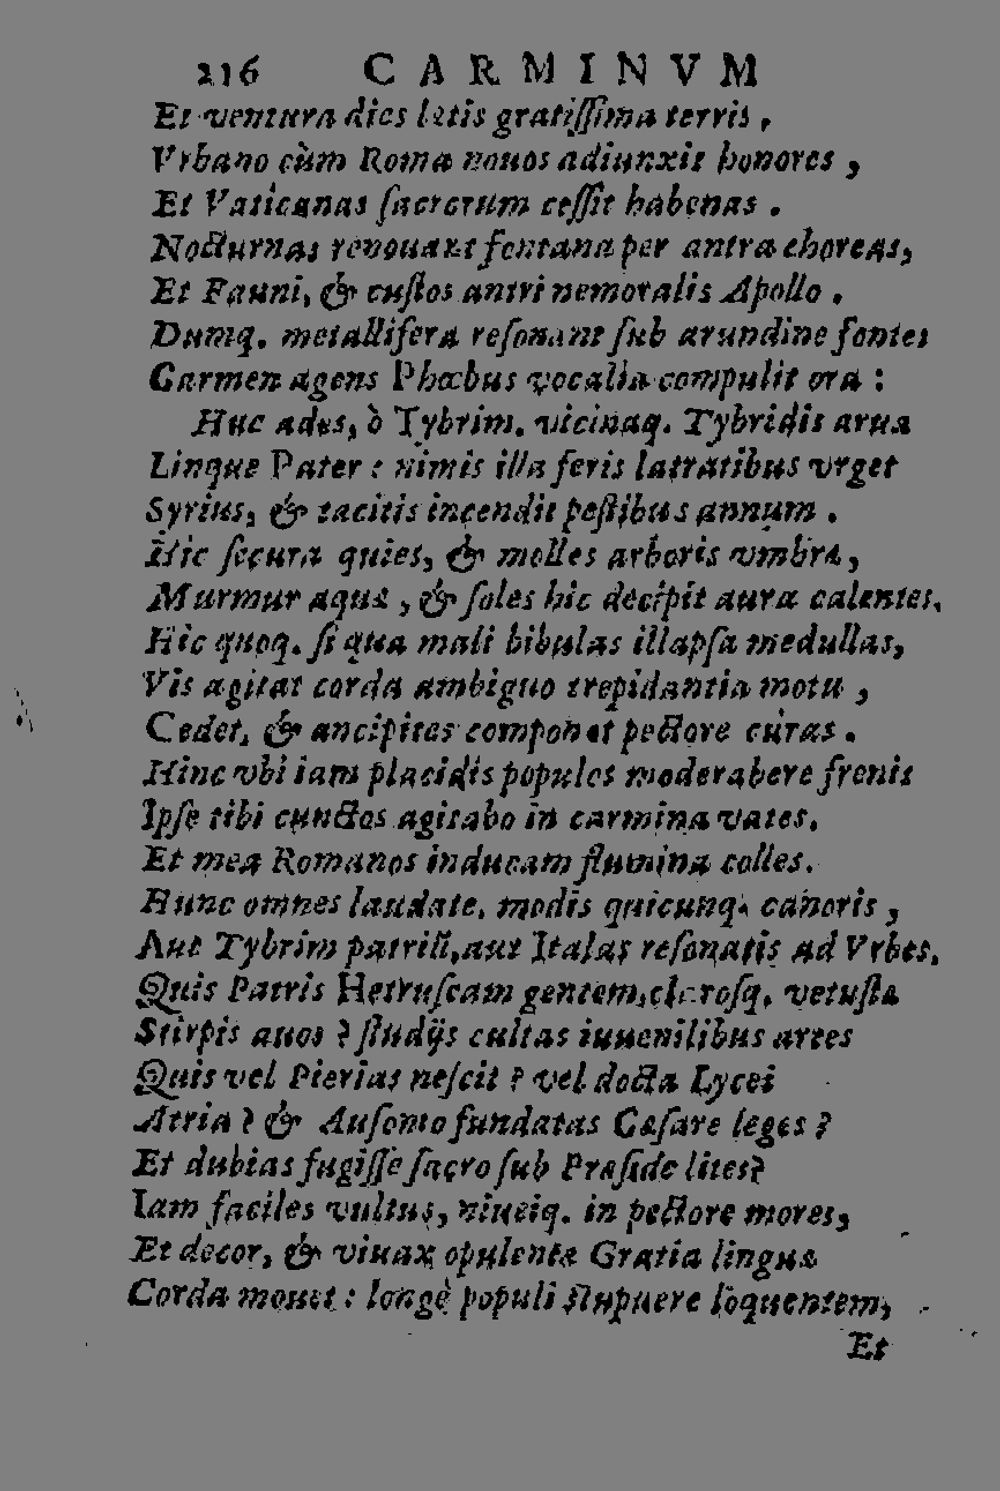 216 CARMINVM
Et ventura dies lætis gratiſſima terris,
Vrbano cùm Roma nouos adiunxit honores,
Et Vaticanas ſacrorum ceſſit habenas.
Nocturnas renouant fontana per antra choreas,
Et Fauni, & cuſtos antri nemoralis Apollo.
Dumq. metallifera reſonant ſub arundine fontes
Carmen agens Phœbus vocalia compulit ora:
Huc ades, ò Tybrim, vicinaq. Tybridis arua
Linque Pater: nimis illa feris latratibus vrget
Syrius, & tacitis incendit peſtibus annum.
Hic ſecura quies, & molles arboris vmbræ,
Murmur aquæ, & ſoles hic decipit aura calentes,
Hic quoq. ſi qua mali bibulas illapſa medullas,
Vis agitat corda ambiguo trepidantia motu,
Cedet, & ancipites componet pectore curas.
Hinc vbi iam placidis populos moderabere frenis
Ipſe tibi cunctos agitabo in carmina vates,
Et mea Romanos inducam flumina colles.
Hunc omnes laudate, modis quicunq. canoris,
Aut Tybrim patrijs, aut Italas reſonatis ad Vrbes,
Quis Patris Hetruſcam gentem, claroſq. vetuſta
Stirpis auos? ſtudijs cultas iuuenilibus artes
Quis vel Pierias neſcit? vel docta Lycei
Atria? & Auſonio fundatas Cæſare leges?
Et dubias fugiſſe ſacro ſub Præſide lites?
Iam faciles vultus, niueiq. in pectore mores,
Et decor, & viuax opulentæ Gratia linguæ
Corda mouet: longè populi ſtupuere loquentem,
Et